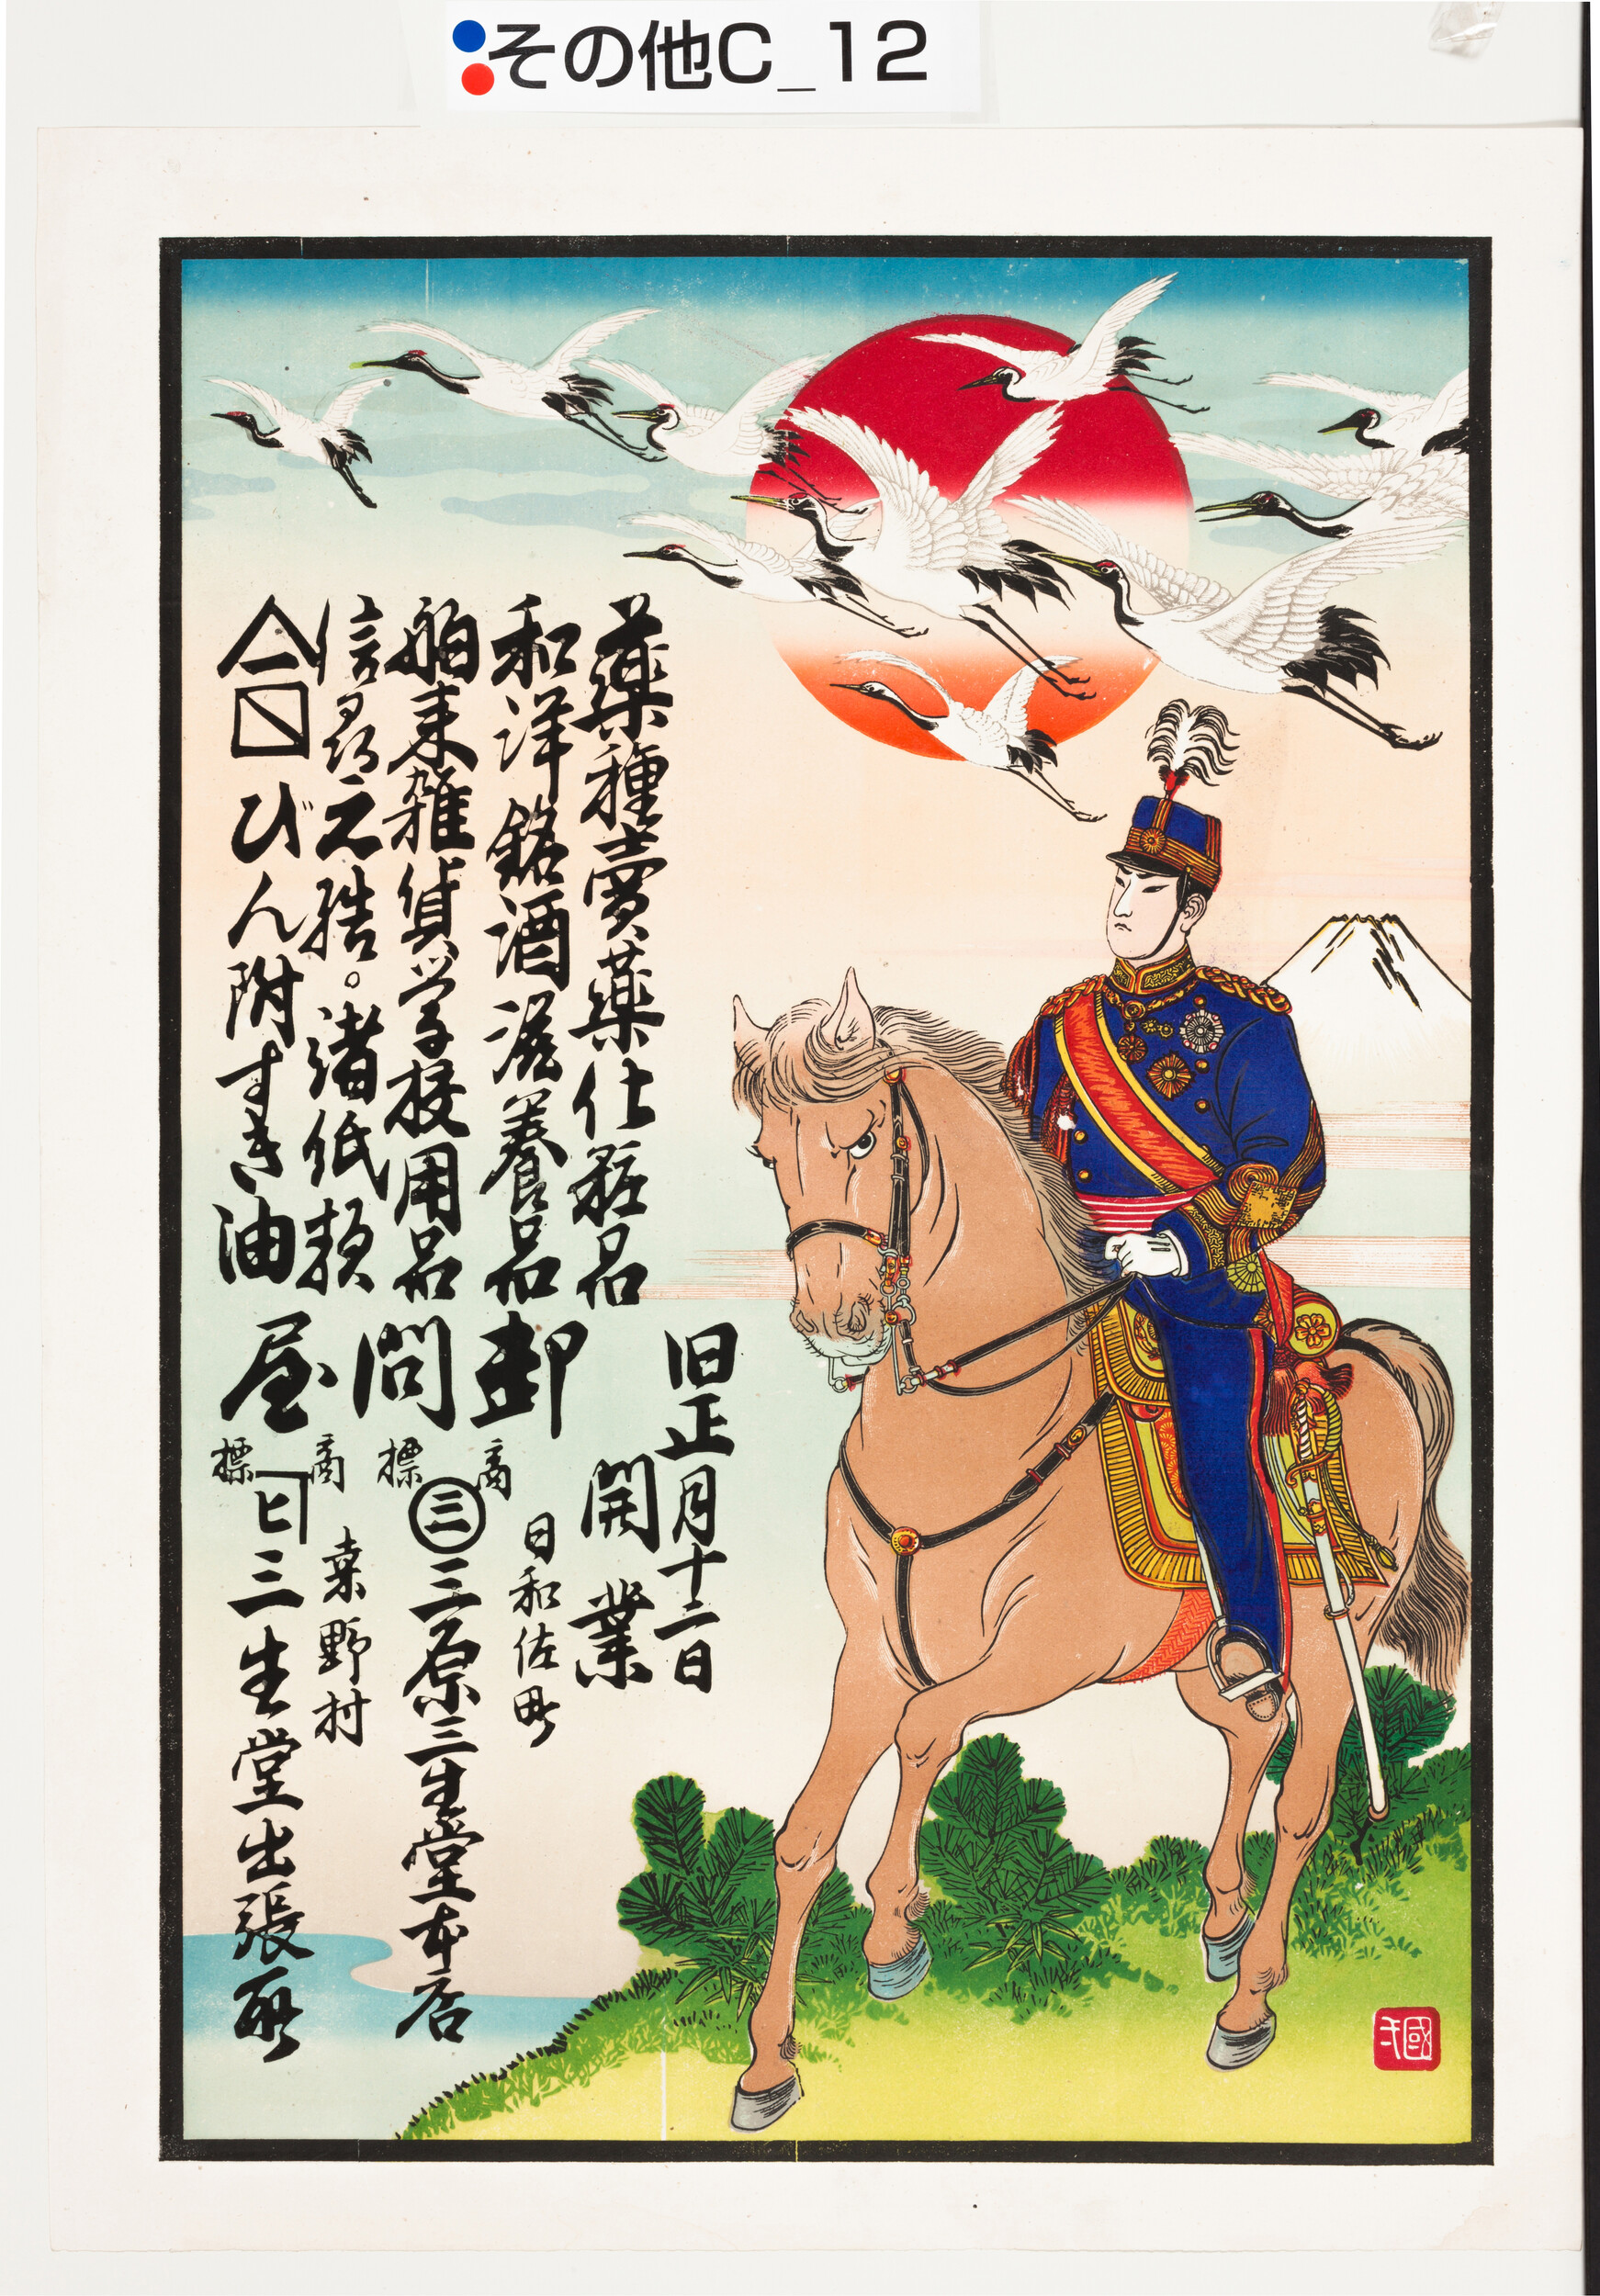 その他C_12
藥種賣藥化粧品
和洋銘酒滋養品
舶来雑貨学校用品
諸紙類
びん附すき油
卸問屋
旧正月十二日
開業
日和佐町
商標
三
三原三生堂本店
桒野村
商標
ヒ
三生堂出張所
國